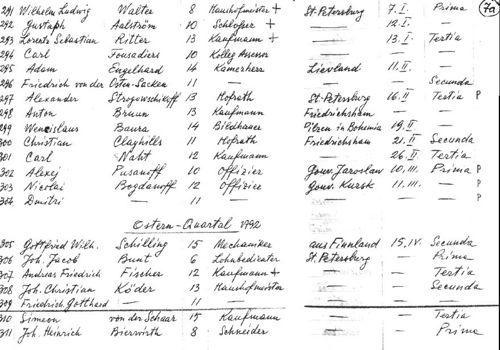 291 Wilhelm Ludwig Walter 8 Haushofmeister + St. Petersburg 7. I. Prima 7a
292 Gustaph Aalström 10 Schlosser + — 12. I. —
293 Lorentz Sebastian Ritter 13 Kaufmann + — 13. I. Tertia
294 Carl Fousadier 10 Kolleg Assessor — — —
295 Adam Engelhard 14 Kamerherr Lievland 11. II. —
296 Friedrich von der Osten-Sacken 11 — — — Secunda
297 Alexander Strogonschikoff 13 Hofrath St. Petersburg 16. II Tertia P
298 Anton Bruun 13 Kaufmann Friedrichsham — —
299 Wenzislaus Baura 14 Bildhauer Pilzen in Bohemia 19. II —
300 Christian Clayhills 11 Hofrath Friedrichsham 21. II Secunda
301 Carl Naht 12 Kaufmann — 26. II Tertia
302 Alexej Pusanoff 10 Offizier Gouv. Jaroslaw 10. III. Prima P
303 Nicolai Bogdanoff 12 Offizier Gouv. Kursk 11. III. — P
304 Dmitri — 11 — — — — P
Ostern-Quartal 1792
305 Gottfried Wilh. Schilling 15 Mechaniker aus Finnland 15. IV. Secunda
306 Joh. Jacob Bunt 6 Lohnbedienter St. Petersburg Prima
307 Andreas Friedrich Fischer 12 Kaufmann + — — Tertia
308 Joh. Christian Köder 13 Haushofmeister — — Secunda
309 Friedrich Gotthard — 11 — — —
310 Simeon von der Schaar 15 Kaufmann — — Tertia
311 Joh. Heinrich Bierwirth 8 Schneider — — Prima